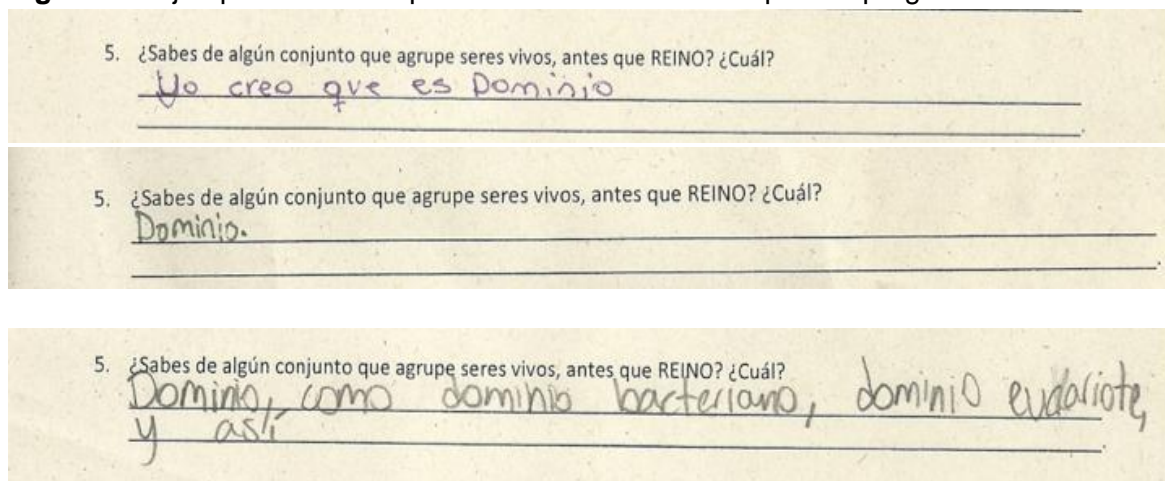 5. ¿Sabes de algún conjunto que agrupe seres vivos, antes que REINO? ¿Cuál?
Yo creo que es Dominio
5. ¿Sabes de algún conjunto que agrupe seres vivos, antes que REINO? ¿Cuál?
Dominio.
5. ¿Sabes de algún conjunto que agrupe seres vivos, antes que REINO? ¿Cuál?
Dominio, como dominio bacteriano, dominio eudariote,
y así